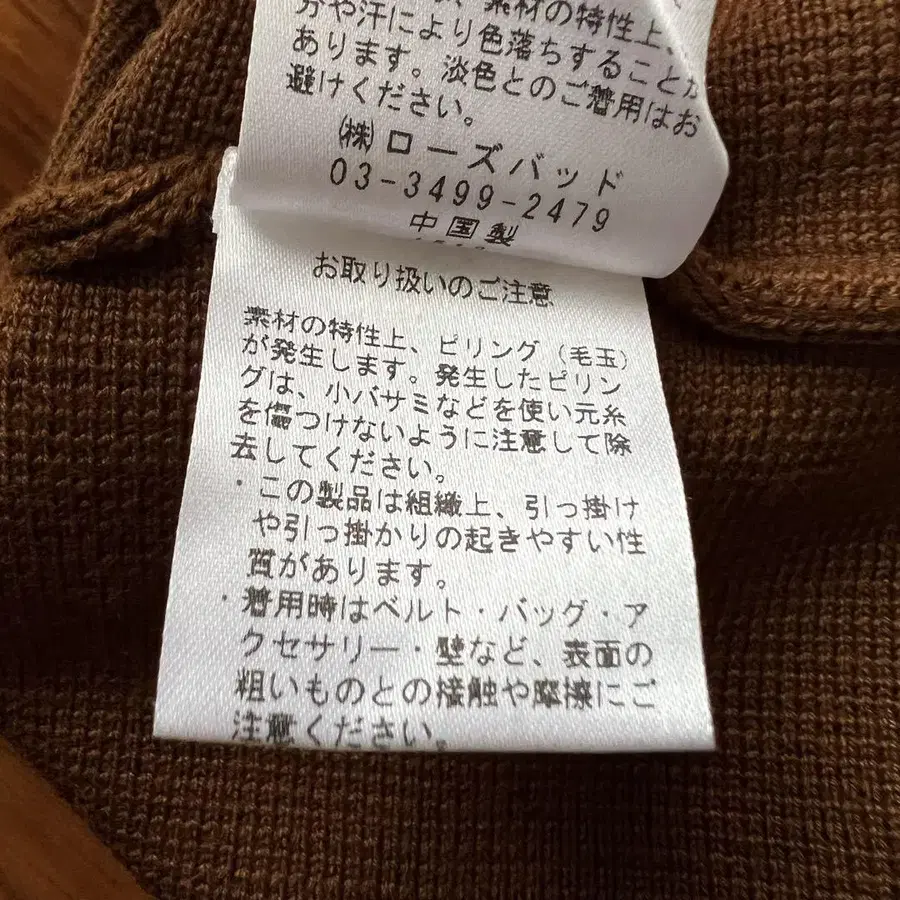 、素材の特性上、
分や汗により色落ちすることが
あります。淡色とのご着用はお
避けください。
㈱ローズバッド
03-3499-2479
中国製
お取り扱いのご注意
素材の特性上、ピリング（毛玉）
が発生します。発生したピリン
グは、小バサミなどを使い元糸
を傷つけないように注意して除
去してください。
・この製品は組織上、引っ掛け
や引っ掛かりの起きやすい性
質があります。
・着用時はベルト・バッグ・ア
クセサリー・壁など、表面の
粗いものとの接触や摩擦にご
注意ください。